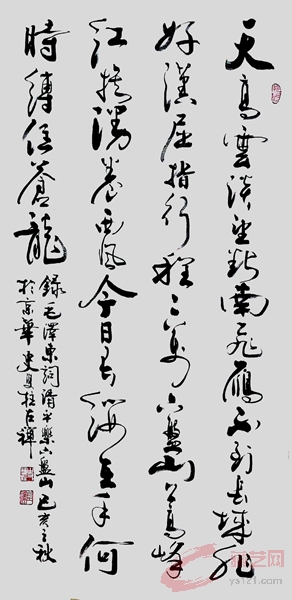 天高雲淡望斷南飛雁不到長城非
好漢屈指行程二萬六盤山上高峰
紅旗漫卷西風今日長纓在手何
時縛住蒼龍
錄毛澤東詞清平樂六盤山己亥之秋
於京華
艺网
ys121.com